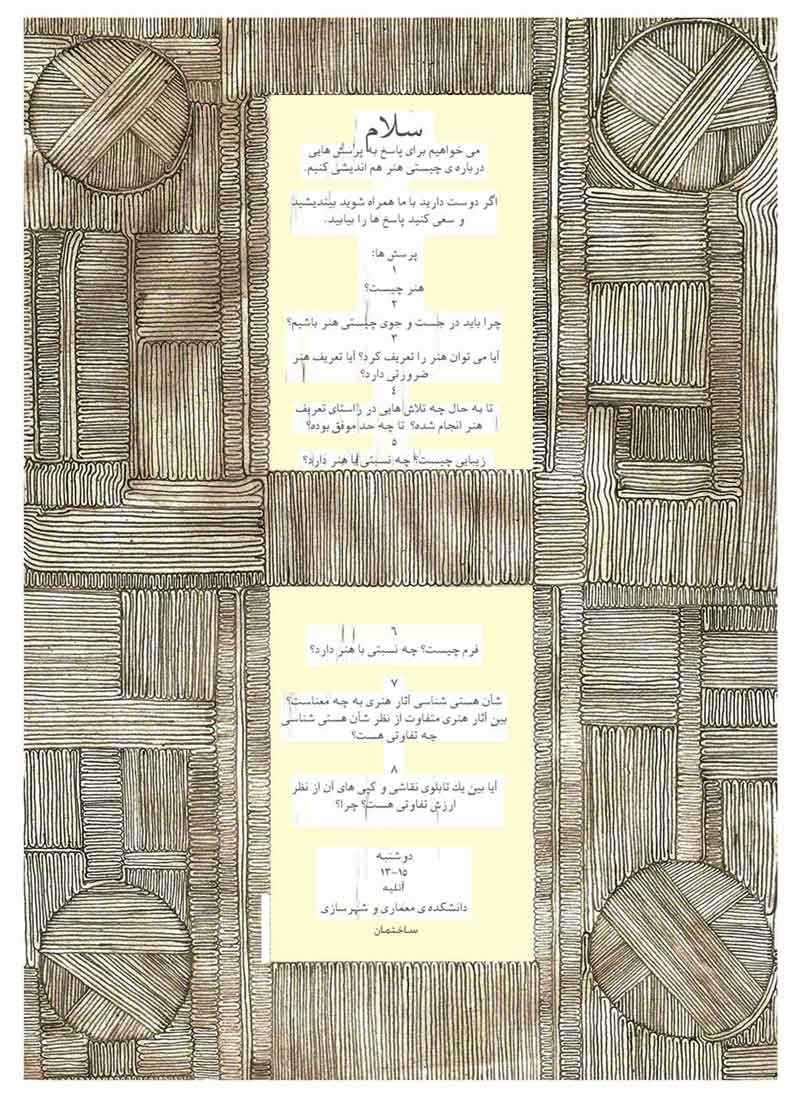 سلام
می خواهیم برای پاسخ به پرسش هایی
درباره ی چیستی هنر هم اندیشی کنیم.
اگر دوست دارید با ما همراه شوید بیندیشید
و سعی کنید پاسخ ها را بیابید.
پرسش ها:
۱
هنر چیست؟
۲
چرا باید در جست و جوی چیستی هنر باشیم؟
۳
آیا می توان هنر را تعریف کرد؟ آیا تعریف هنر
ضرورتی دارد؟
٤
تا به حال چه تلاش هایی در راستای تعریف
هنر انجام شده؟ تا چه حد موفق بوده؟
۵
زیبایی چیست؟ چه نسبتی با هنر دارد؟
٦
فرم چیست؟ چه نسبتی با هنر دارد؟
۷
شأن هستی شناسی آثار هنری به چه معناست؟
بین آثار هنری متفاوت از نظر شأن هستی شناسی
چه تفاوتی هست؟
۸
آیا بین یك تابلوی نقاشی و کپی های آن از نظر
ارزش تفاوتی هست؟ چرا؟
دوشنبه
۱۳-۱۵
آتلیه
دانشکده ی معماری و شهرسازی
ساختمان